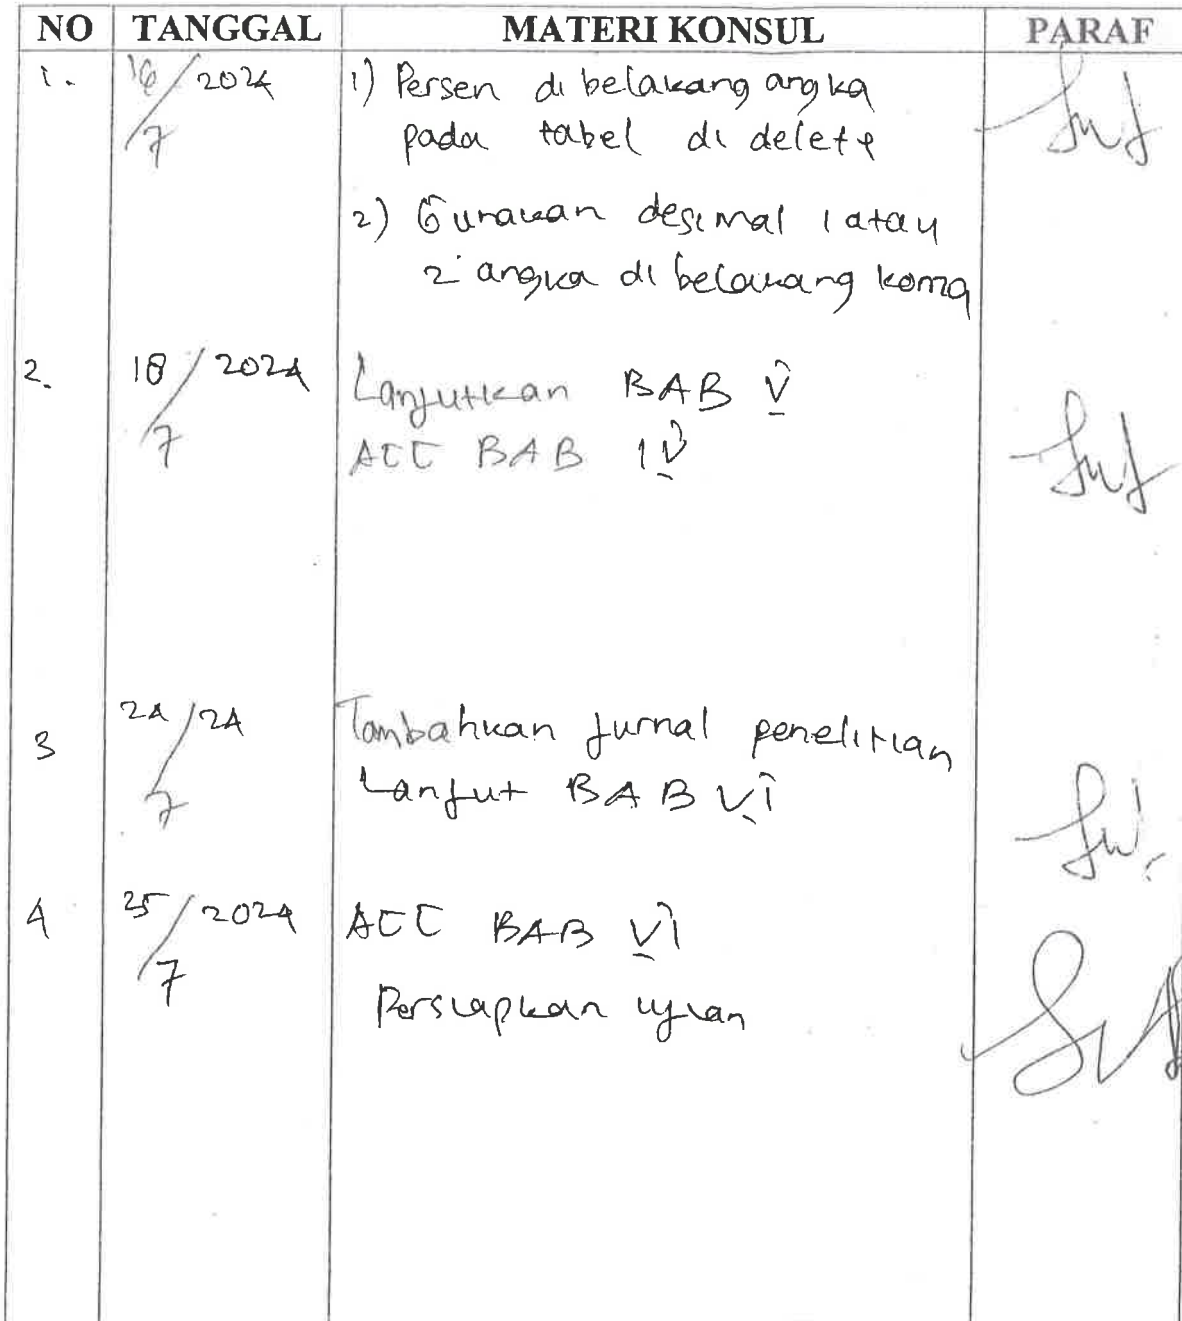 NO TANGGAL MATERI KONSUL PARAF
1. 16/7 2024 1) Persen di belakang angka
pada tabel di delete
2) Gunakan desimal 1 atau
2 angka di belakang koma
2. 18/7 2024 Lanjutkan BAB V
ACC BAB IV
3 24/7 24 Tambahkan jurnal penelitian
Lanjut BAB VI
4 25/7 2024 ACC BAB VI
Persiapkan ujian